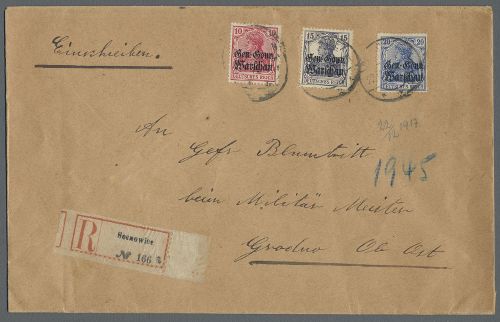 Einschreiben.
10 10
Gen.-Gouv.
Warschau
DEUTSCHES REICH
15 15
Gen.-Gouv.
Warschau
DEUTSCHES REICH
20 20
Gen.-Gouv.
Warschau
DEUTSCHES REICH
22/12 1917
An
Gefr Blumtritt
1945
beim Militär Meister
Grodno Ob Ost
R
Sosnowice
№ 166